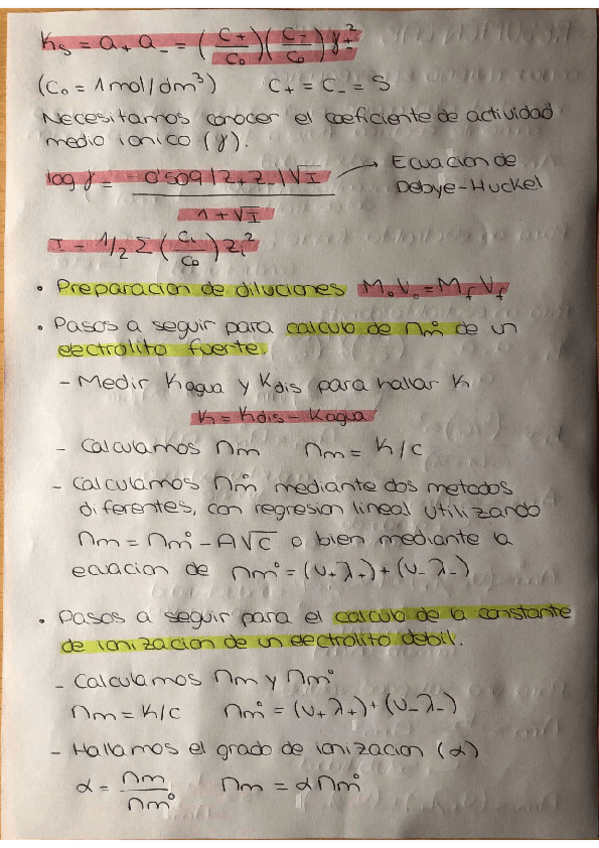 Ks = a+ a- = (C+/C₀)(C-/C₀)γ±²
(C₀ = 1mol/dm³) C+ = C- = S
Necesitamos conocer el coeficiente de actividad
medio ionico (γ).
log γ = -0'509 |Z+ Z-|√I / 1+√I → Ecuacion de
Debye-Huckel
I = 1/2 Σ (Ci/C₀) Zi²
• Preparacion de diluciones M₀V₀ = MfVf
• Pasos a seguir para calculo de Λm° de un
electrolito fuerte.
- Medir Kagua y Kdis para hallar K
K = Kdis - Kagua
- Calculamos Λm Λm = K/c
- Calculamos Λm° mediante dos metodos
diferentes, con regresion lineal utilizando
Λm = Λm° - A√C o bien mediante la
ecuacion de Λm° = (υ+ λ+) + (υ- λ-)
• Pasos a seguir para el calculo de la constante
de ionizacion de un electrolito debil.
- Calculamos Λm y Λm°
Λm = K/C Λm° = (υ+ λ+) + (υ- λ-)
- Hallamos el grado de ionizacion (α)
α = Λm/Λm° Λm = α Λm°